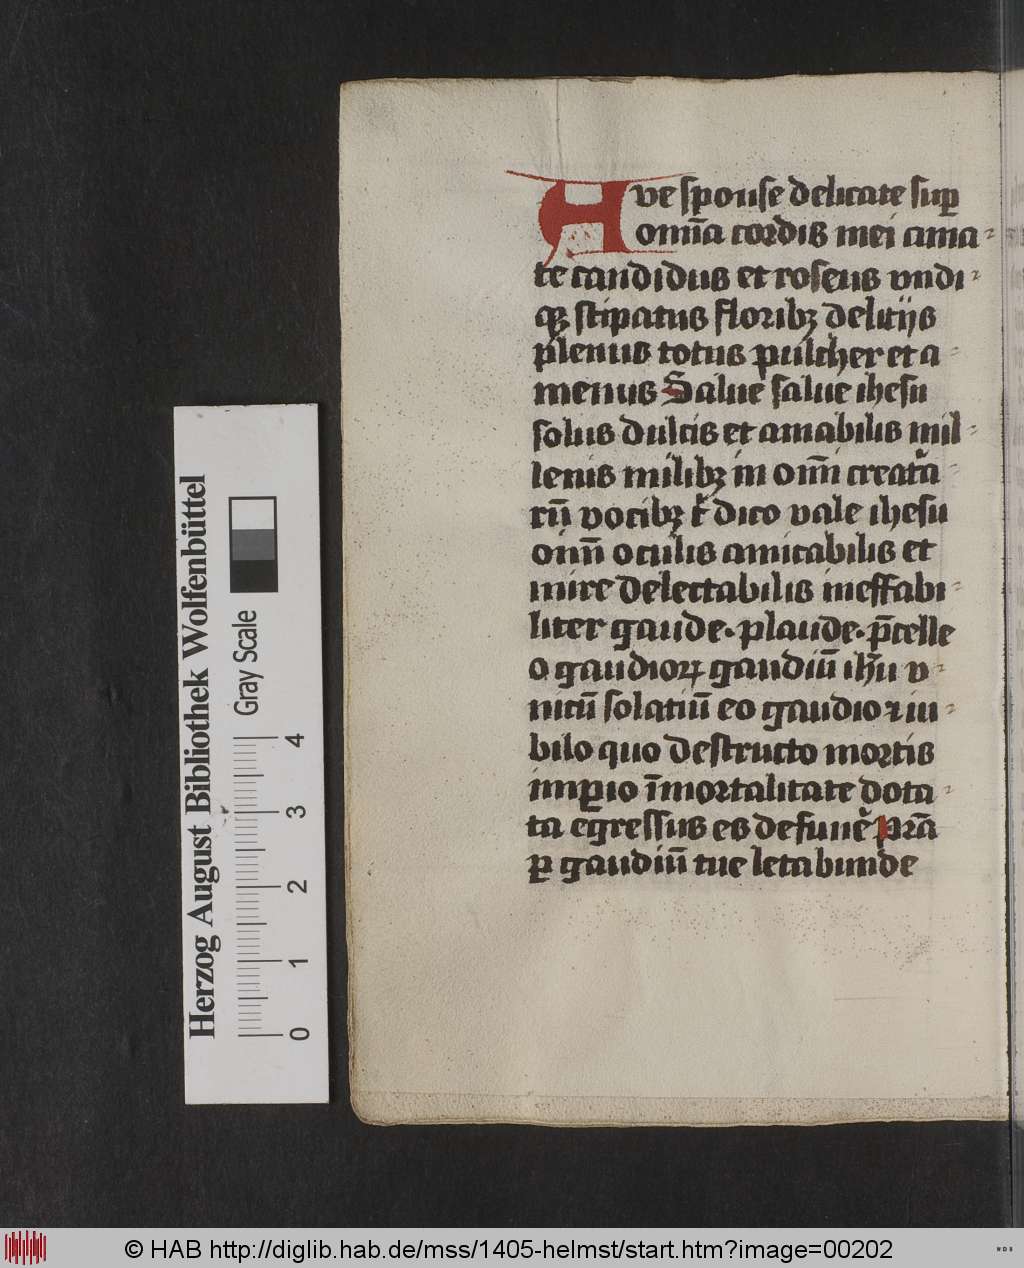 Ave sponse delicate suꝑ
om̅ia cordis mei ama-
te candidus et roseus vndi-
qꝫ stipatus floribꝫ delicijs
plenus totus pulcher et a-
menus Salue salue ihesu
solus dulcis et amabilis mil-
lenis milibꝫ in om̅i creatᷓa-
ru̅ vocibꝫ tͥ dico vale ihesu
om̅ oculis amicabilis et
mire delectabilis ineffabi-
liter gaude·plaude·p̅celle
o gaudioꝝ gaudiu̅ ih̅u v-
nicu̅ solaciu̅ eo gaudio ⁊ iu-
bilo quo destructo mortis
imꝑio i̅mortalitate dota-
ta egressus es de fune᷑ pr̅a
ꝑ gaudiu̅ tue letabunde
Herzog August Bibliothek Wolfenbüttel
Gray Scale
0 1 2 3 4
© HAB http://diglib.hab.de/mss/1405-helmst/start.htm?image=00202